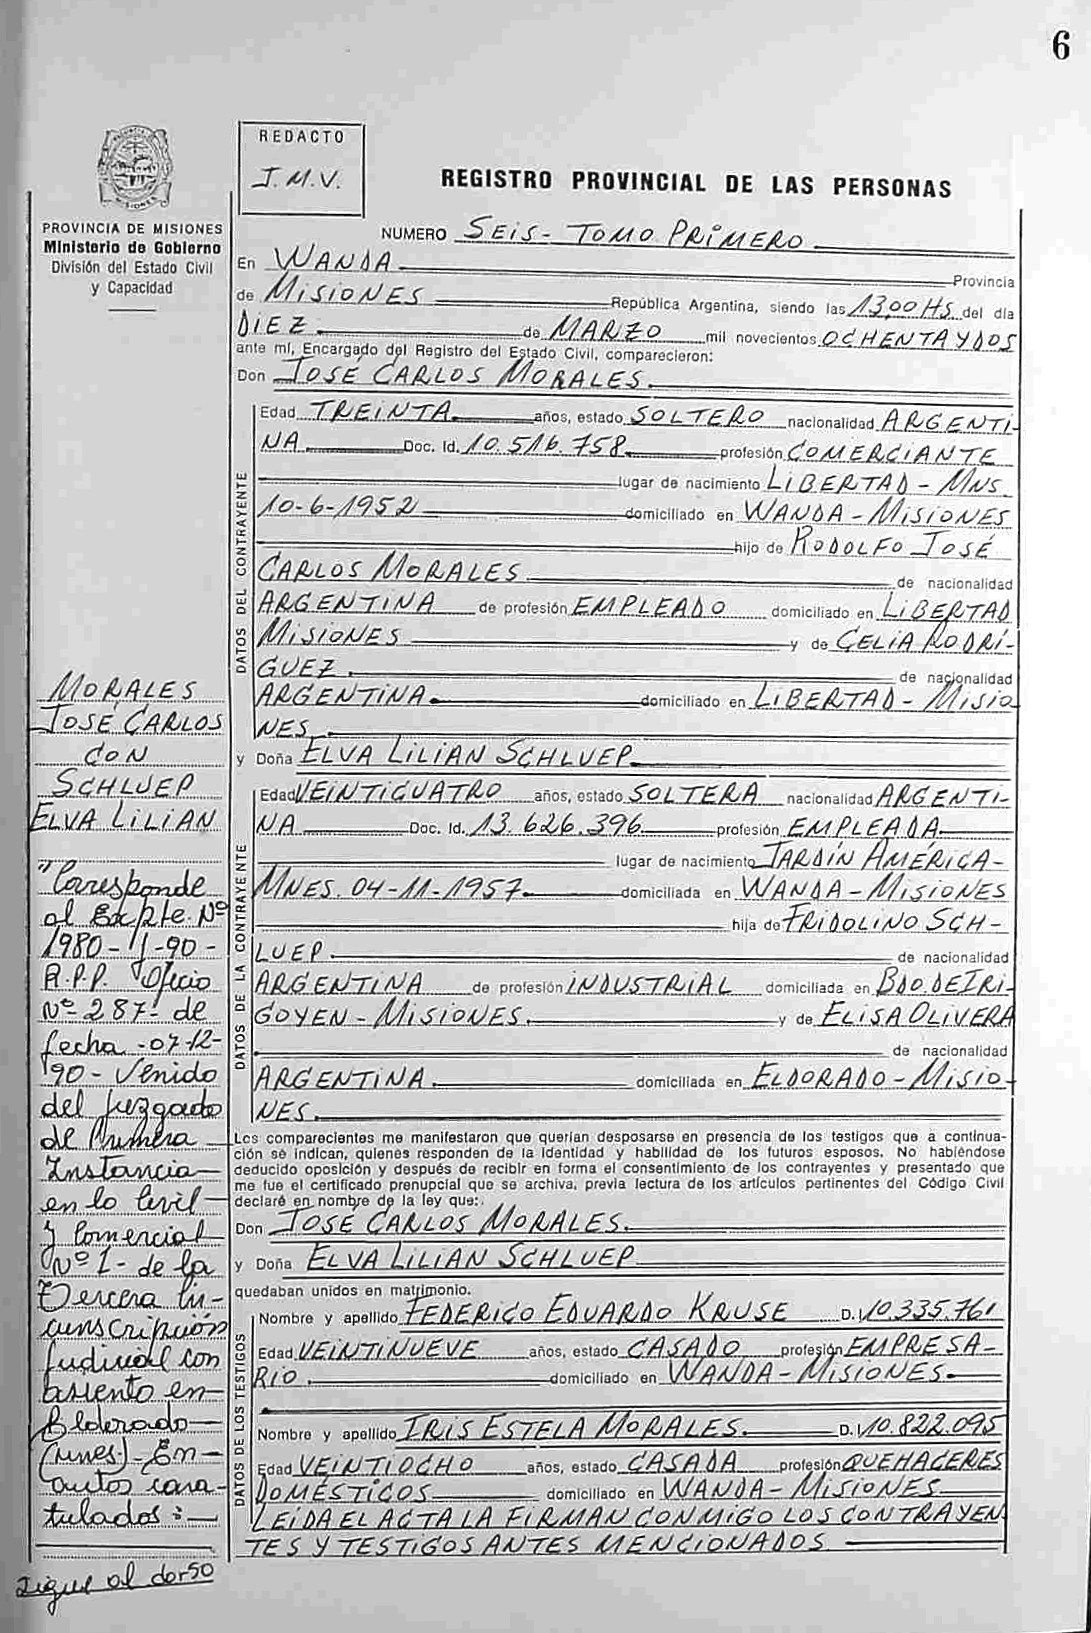 6
REDACTO
J.M.V.
REGISTRO PROVINCIAL DE LAS PERSONAS
PROVINCIA DE MISIONES
Ministerio de Gobierno
División del Estado Civil
y Capacidad
NUMERO SEIS - TOMO PRIMERO
En WANDA Provincia
de MISIONES República Argentina, siendo las 13,00 HS. del día
DIEZ de MARZO mil novecientos OCHENTA Y DOS
ante mí, Encargado del Registro del Estado Civil, comparecieron:
Don JOSÉ CARLOS MORALES.
DATOS DEL CONTRAYENTE
Edad TREINTA años, estado SOLTERO nacionalidad ARGENTI-
NA Doc. Id. 10.516.758 profesión COMERCIANTE
lugar de nacimiento LIBERTAD - MNS.
10-6-1952 domiciliado en WANDA - MISIONES
hijo de RODOLFO JOSÉ
CARLOS MORALES de nacionalidad
ARGENTINA de profesión EMPLEADO domiciliado en LIBERTAD
MISIONES y de CELIA RODRÍ-
GUEZ de nacionalidad
ARGENTINA domiciliado en LIBERTAD - MISIO
NES
y Doña ELVA LILIAN SCHLUEP
DATOS DE LA CONTRAYENTE
Edad VEINTICUATRO años, estado SOLTERA nacionalidad ARGENTI-
NA Doc. Id. 13.626.396 profesión EMPLEADA
lugar de nacimiento JARDÍN AMÉRICA-
MNES. 04-11-1957 domiciliada en WANDA - MISIONES
hija de FRIDOLINO SCH-
LUEP de nacionalidad
ARGENTINA de profesión INDUSTRIAL domiciliada en BDO. DE IRI-
GOYEN - MISIONES. y de ELISA OLIVERA
de nacionalidad
ARGENTINA. domiciliada en ELDORADO - MISIO-
NES.
Los comparecientes me manifestaron que querían desposarse en presencia de los testigos que a continua-
ción se indican, quienes responden de la identidad y habilidad de los futuros esposos. No habiéndose
deducido oposición y después de recibir en forma el consentimiento de los contrayentes y presentado que
me fue el certificado prenupcial que se archiva, previa lectura de los artículos pertinentes del Código Civil
declaré en nombre de la ley que:
Don JOSÉ CARLOS MORALES.
y Doña ELVA LILIAN SCHLUEP
quedaban unidos en matrimonio.
DATOS DE LOS TESTIGOS
Nombre y apellido FEDERICO EDUARDO KRUSE D.I. 10.335.761
Edad VEINTINUEVE años, estado CASADO profesión EMPRESA-
RIO. domiciliado en WANDA - MISIONES
Nombre y apellido IRIS ESTELA MORALES. D.I. 10.822.095
Edad VEINTIOCHO años, estado CASADA profesión QUEHACERES
DOMÉSTICOS domiciliado en WANDA - MISIONES
LEÍDA EL ACTA LA FIRMAN CONMIGO LOS CONTRAYEN
TES Y TESTIGOS ANTES MENCIONADOS
MORALES
JOSÉ CARLOS
CON
SCHLUEP
ELVA LILIAN
"Corresponde
al Expte. Nº
1980-    -90-
R.P.P. Oficio
Nº 287- de
fecha -07-12-
90 - Venido
del Juzgado
de Primera
Instancia
en lo Civil
y Comercial
Nº 1 - de la
Tercera Cir-
cunscripción
Judicial con
asiento en
Eldorado
(mnes.) - En
autos cara-
tulados:
Sigue al dorso